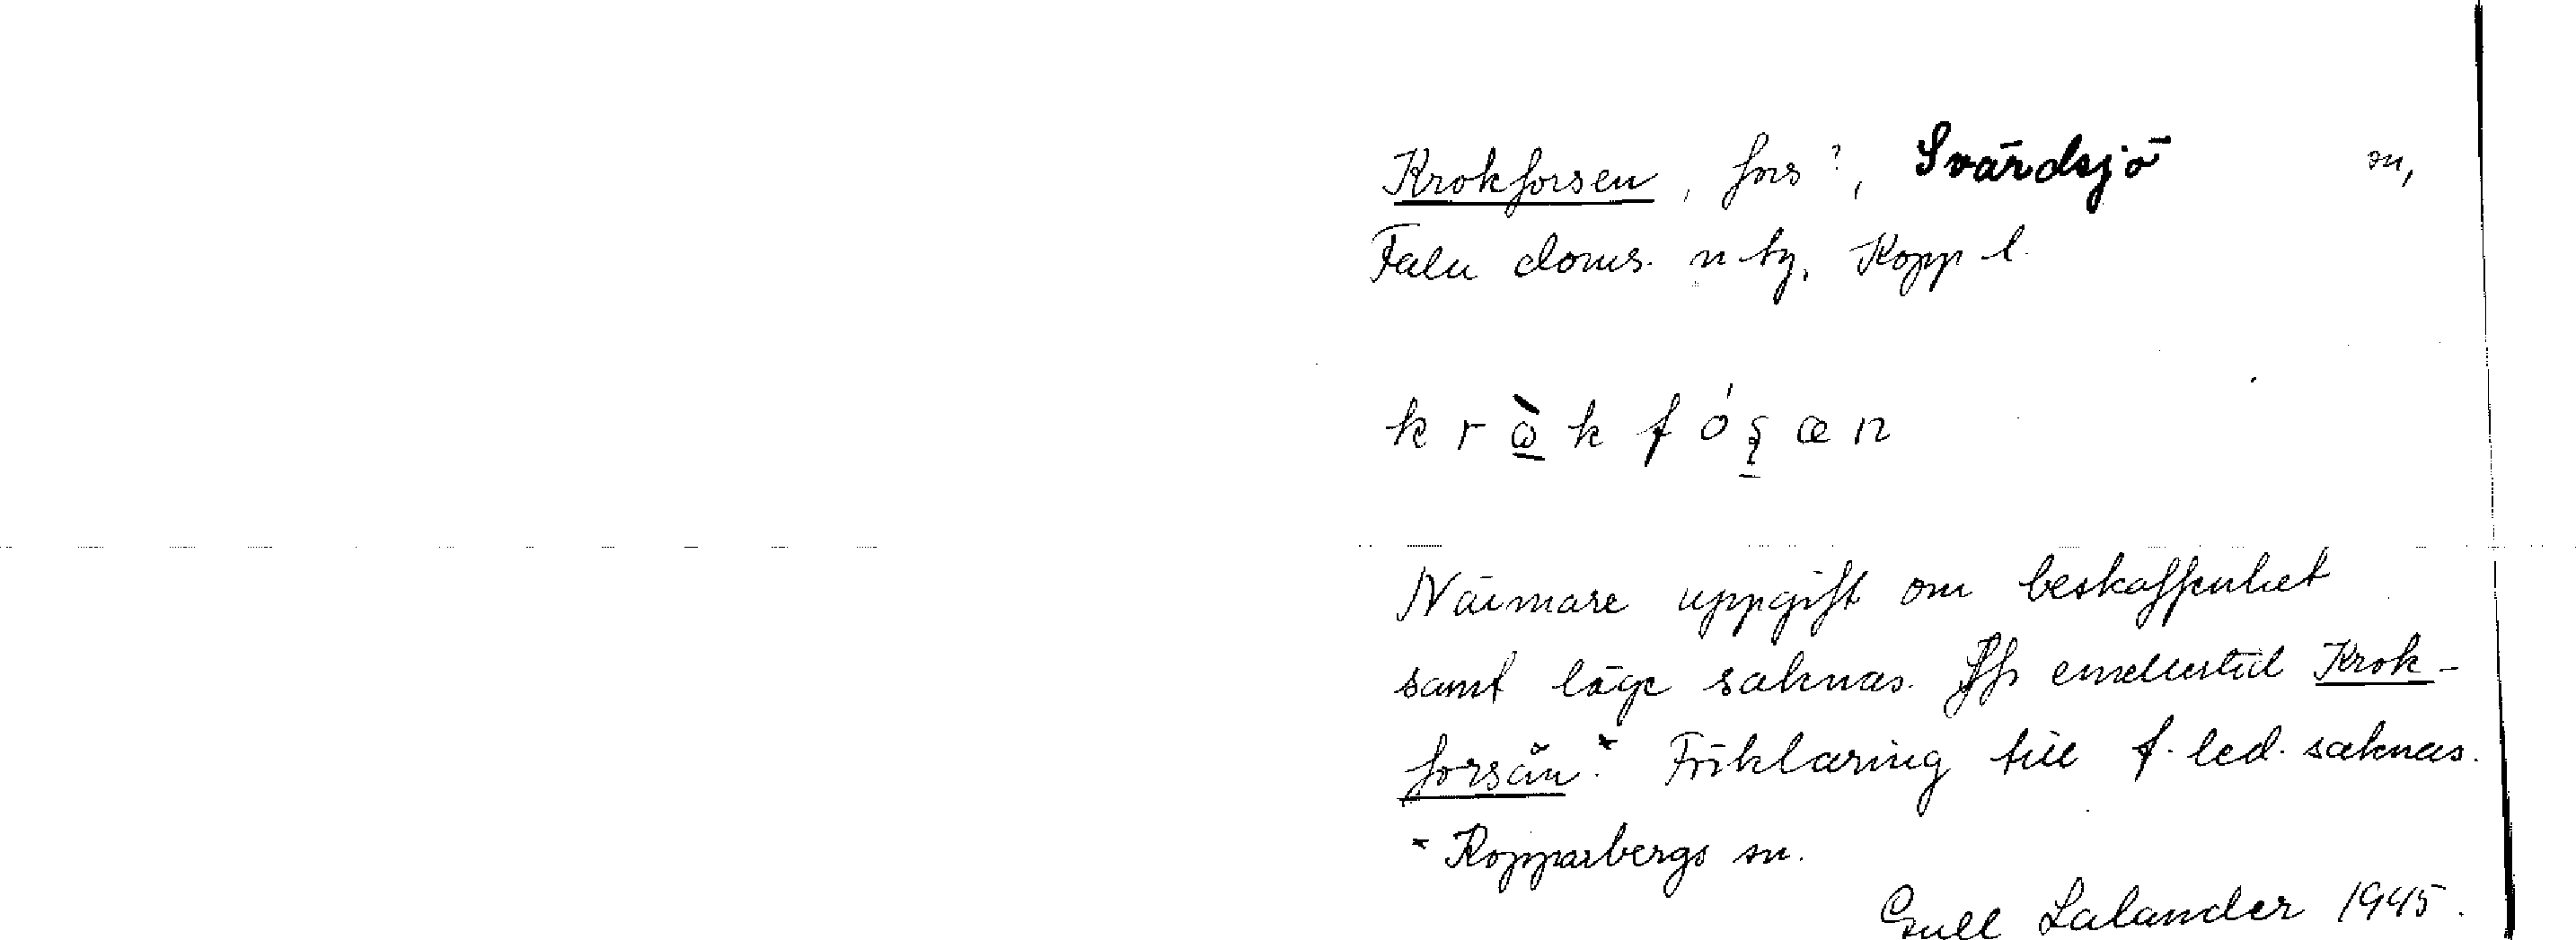 Krokforsen, fors?, Svärdsjö sn,
Falu doms. n tg, Kopp l.
k r ò̲ k f ó ş̲ æ n
Närmare uppgift om beskaffenhet
samt läge saknas. Jfr emellertid Krok-
forsån.* Förklaring till f. led. saknas.
* Kopparbergs sn.
Gull Lalander 1945.